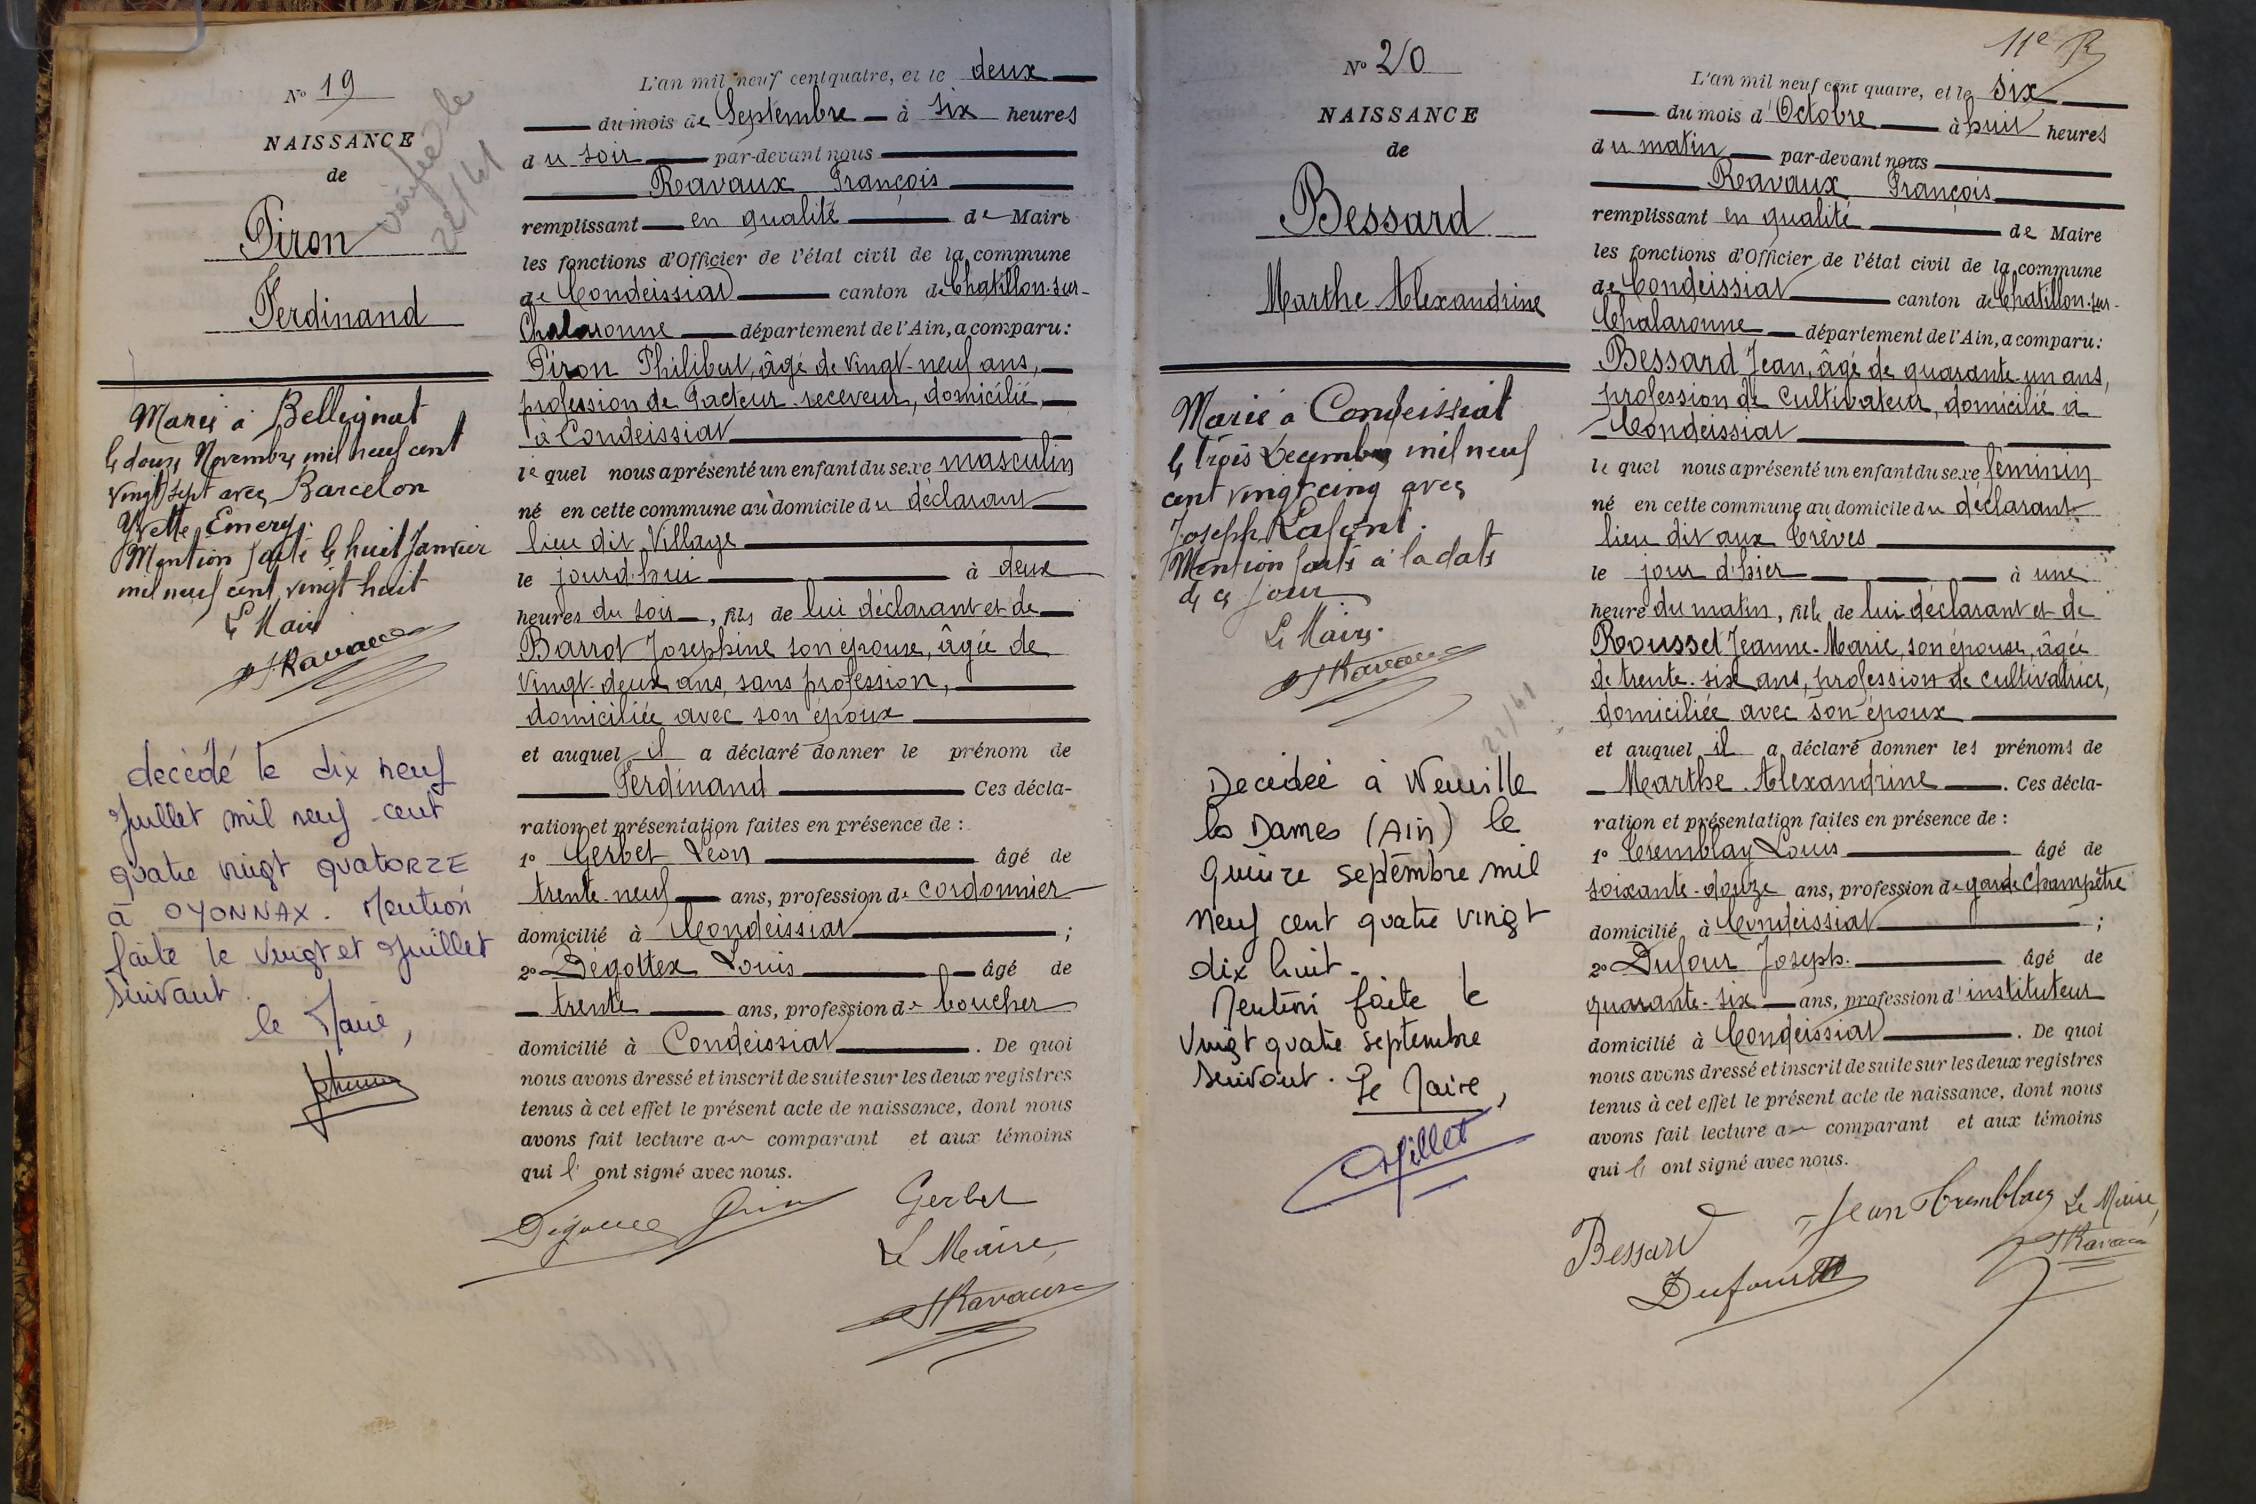 N° 19
NAISSANCE
de
Piron
Ferdinand
vérifié le
22/41
Marié à Bellignat
le douze Novembre mil neuf cent
vingt sept avec Barcelon
Yvette Emery.
Mention faite le huit Janvier
mil neuf cent vingt huit
Le Maire
FRavaux
decédé le dix neuf
Juillet mil neuf cent
quatre vingt quatorze
à OYONNAX. Mention
faite le vingt et Juillet
suivant.
le Maire,
L'an mil neuf cent quatre, et le deux
du mois de Septembre à six heures
du soir par-devant nous
Ravaux François
remplissant en qualité de Maire
les fonctions d'Officier de l'état civil de la commune
de Condeissiat canton de Chatillon-sur-
Chalaronne département de l'Ain, a comparu:
Piron Philibert, âgé de vingt-neuf ans,
profession de facteur-receveur, domicilié,
à Condeissiat
lequel nous a présenté un enfant du sexe masculin
né en cette commune au domicile du déclarant
lieu dit Village
le jourd'hui à deux
heures du soir, fils de lui déclarant et de
Barrot Josephine son épouse, âgée de
vingt-deux ans, sans profession,
domiciliée avec son époux
et auquel il a déclaré donner le prénom de
Ferdinand Ces décla-
ration et présentation faites en présence de :
1° Gerbet Léon âgé de
trente-neuf ans, profession de cordonnier
domicilié à Condeissiat ;
2° Dégottex Louis âgé de
trente ans, profession de boucher
domicilié à Condeissiat. De quoi
nous avons dressé et inscrit de suite sur les deux registres
tenus à cet effet le présent acte de naissance, dont nous
avons fait lecture au comparant et aux témoins
qui l' ont signé avec nous.
Gerbet
Le Maire,
FRavaux
N° 20
NAISSANCE
de
Bessard
Marthe Alexandrine
Marié à Condeissiat
le trois Decembre mil neuf
cent vingt cinq avec
Joseph Lafont.
Mention faite à la date
de ce jour
Le Maire.
FRavaux
22/41
Decédée à Neuville
les Dames (Ain) le
Quinze septembre mil
neuf cent quatre vingt
dix huit.
Mention faite le
Vingt quatre septembre
suivant. Le Maire,
11e R
L'an mil neuf cent quatre, et le six
du mois d'Octobre à huit heures
du matin par-devant nous
Ravaux François
remplissant en qualité de Maire
les fonctions d'Officier de l'état civil de la commune
de Condeissiat canton de Chatillon-sur-
Chalaronne département de l'Ain, a comparu:
Bessard Jean, âgé de quarante-un ans,
profession de Cultivateur, domicilié à
Condeissiat
lequel nous a présenté un enfant du sexe féminin
né en cette commune au domicile du déclarant
lieu dit aux Crèves
le jour d'hier à une
heure du matin, fille de lui déclarant et de
Rousset Jeanne-Marie, son épouse, âgée
de trente-six ans, profession de cultivatrice,
domiciliée avec son époux
et auquel il a déclaré donner les prénoms de
Marthe Alexandrine. Ces décla-
ration et présentation faites en présence de :
1° Tremblay Louis âgé de
soixante-douze ans, profession de garde champêtre
domicilié à Condeissiat ;
2° Dufour Joseph. âgé de
quarante-six ans, profession d'instituteur
domicilié à Condeissiat. De quoi
nous avons dressé et inscrit de suite sur les deux registres
tenus à cet effet le présent acte de naissance, dont nous
avons fait lecture au comparant et aux témoins
qui l' ont signé avec nous.
Bessard Jean Tremblay Le Maire,
Dufour FRavaux